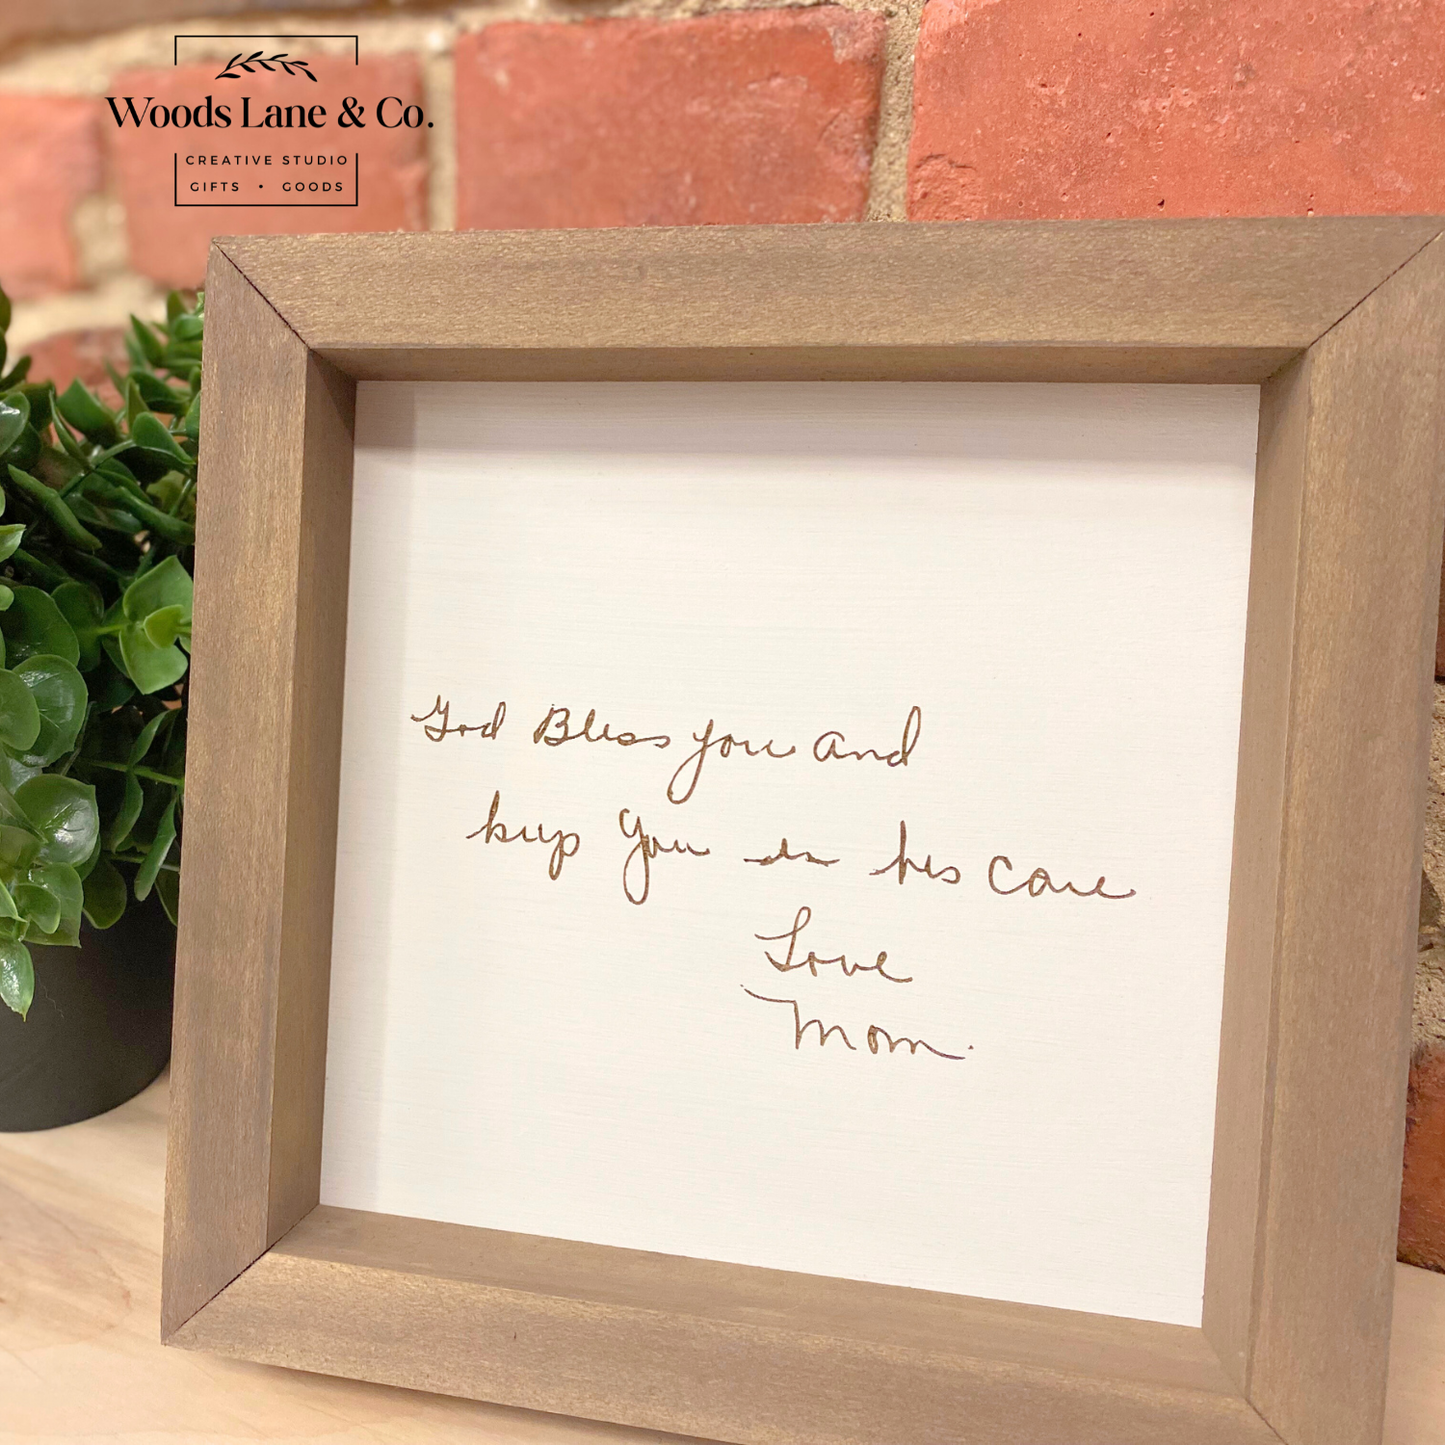 Woods Lane & Co.
CREATIVE STUDIO
GIFTS • GOODS
God Bless you and
keep you in his care
Love
Mom.